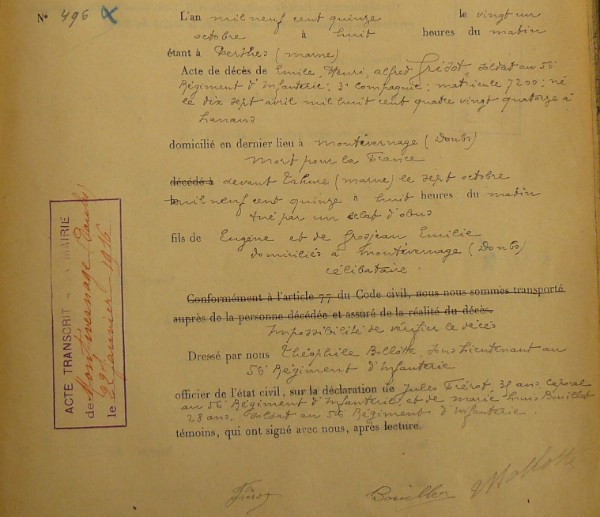 N° 496 X
L'an mil neuf cent quinze le vingt un
octobre à huit heures du matin
étant à Perthes (marne)
Acte de décès de Emile, Henri, Alfred Frérot, soldat au 56
Régiment d'Infanterie, 3e compagnie, matricule 7200, né
le dix sept avril mil huit cent quatre vingt quatorze à
Lanans
domicilié en dernier lieu à Montivernage (Doubs)
Mort pour la France
décédé à devant Tahure (marne) le sept octobre
mil neuf cent quinze à huit heures du matin
tué par un éclat d'obus
fils de Eugène et de Grosjean Emilie
domiciliés à Montivernage (Doubs)
célibataire.
Conformément à l'article 77 du Code civil, nous nous sommes transporté
auprès de la personne décédée et assuré de la réalité du décès.
Impossibilité de vérifier le décès
Dressé par nous Théophile Bollotte, sous Lieutenant au
56 Régiment d'Infanterie
officier de l'état civil, sur la déclaration de Jules Frérot, ans, caporal
au 56 Régiment d'Infanterie, et de marie Louis Bouillot
28 ans, soldat au 56 Régiment d'Infanterie.
témoins, qui ont signé avec nous, après lecture.
Frérot Bouillot Bollotte
ACTE TRANSCRIT MAIRIE
de Montivernage (Doubs)
le 22 Janvier 1916